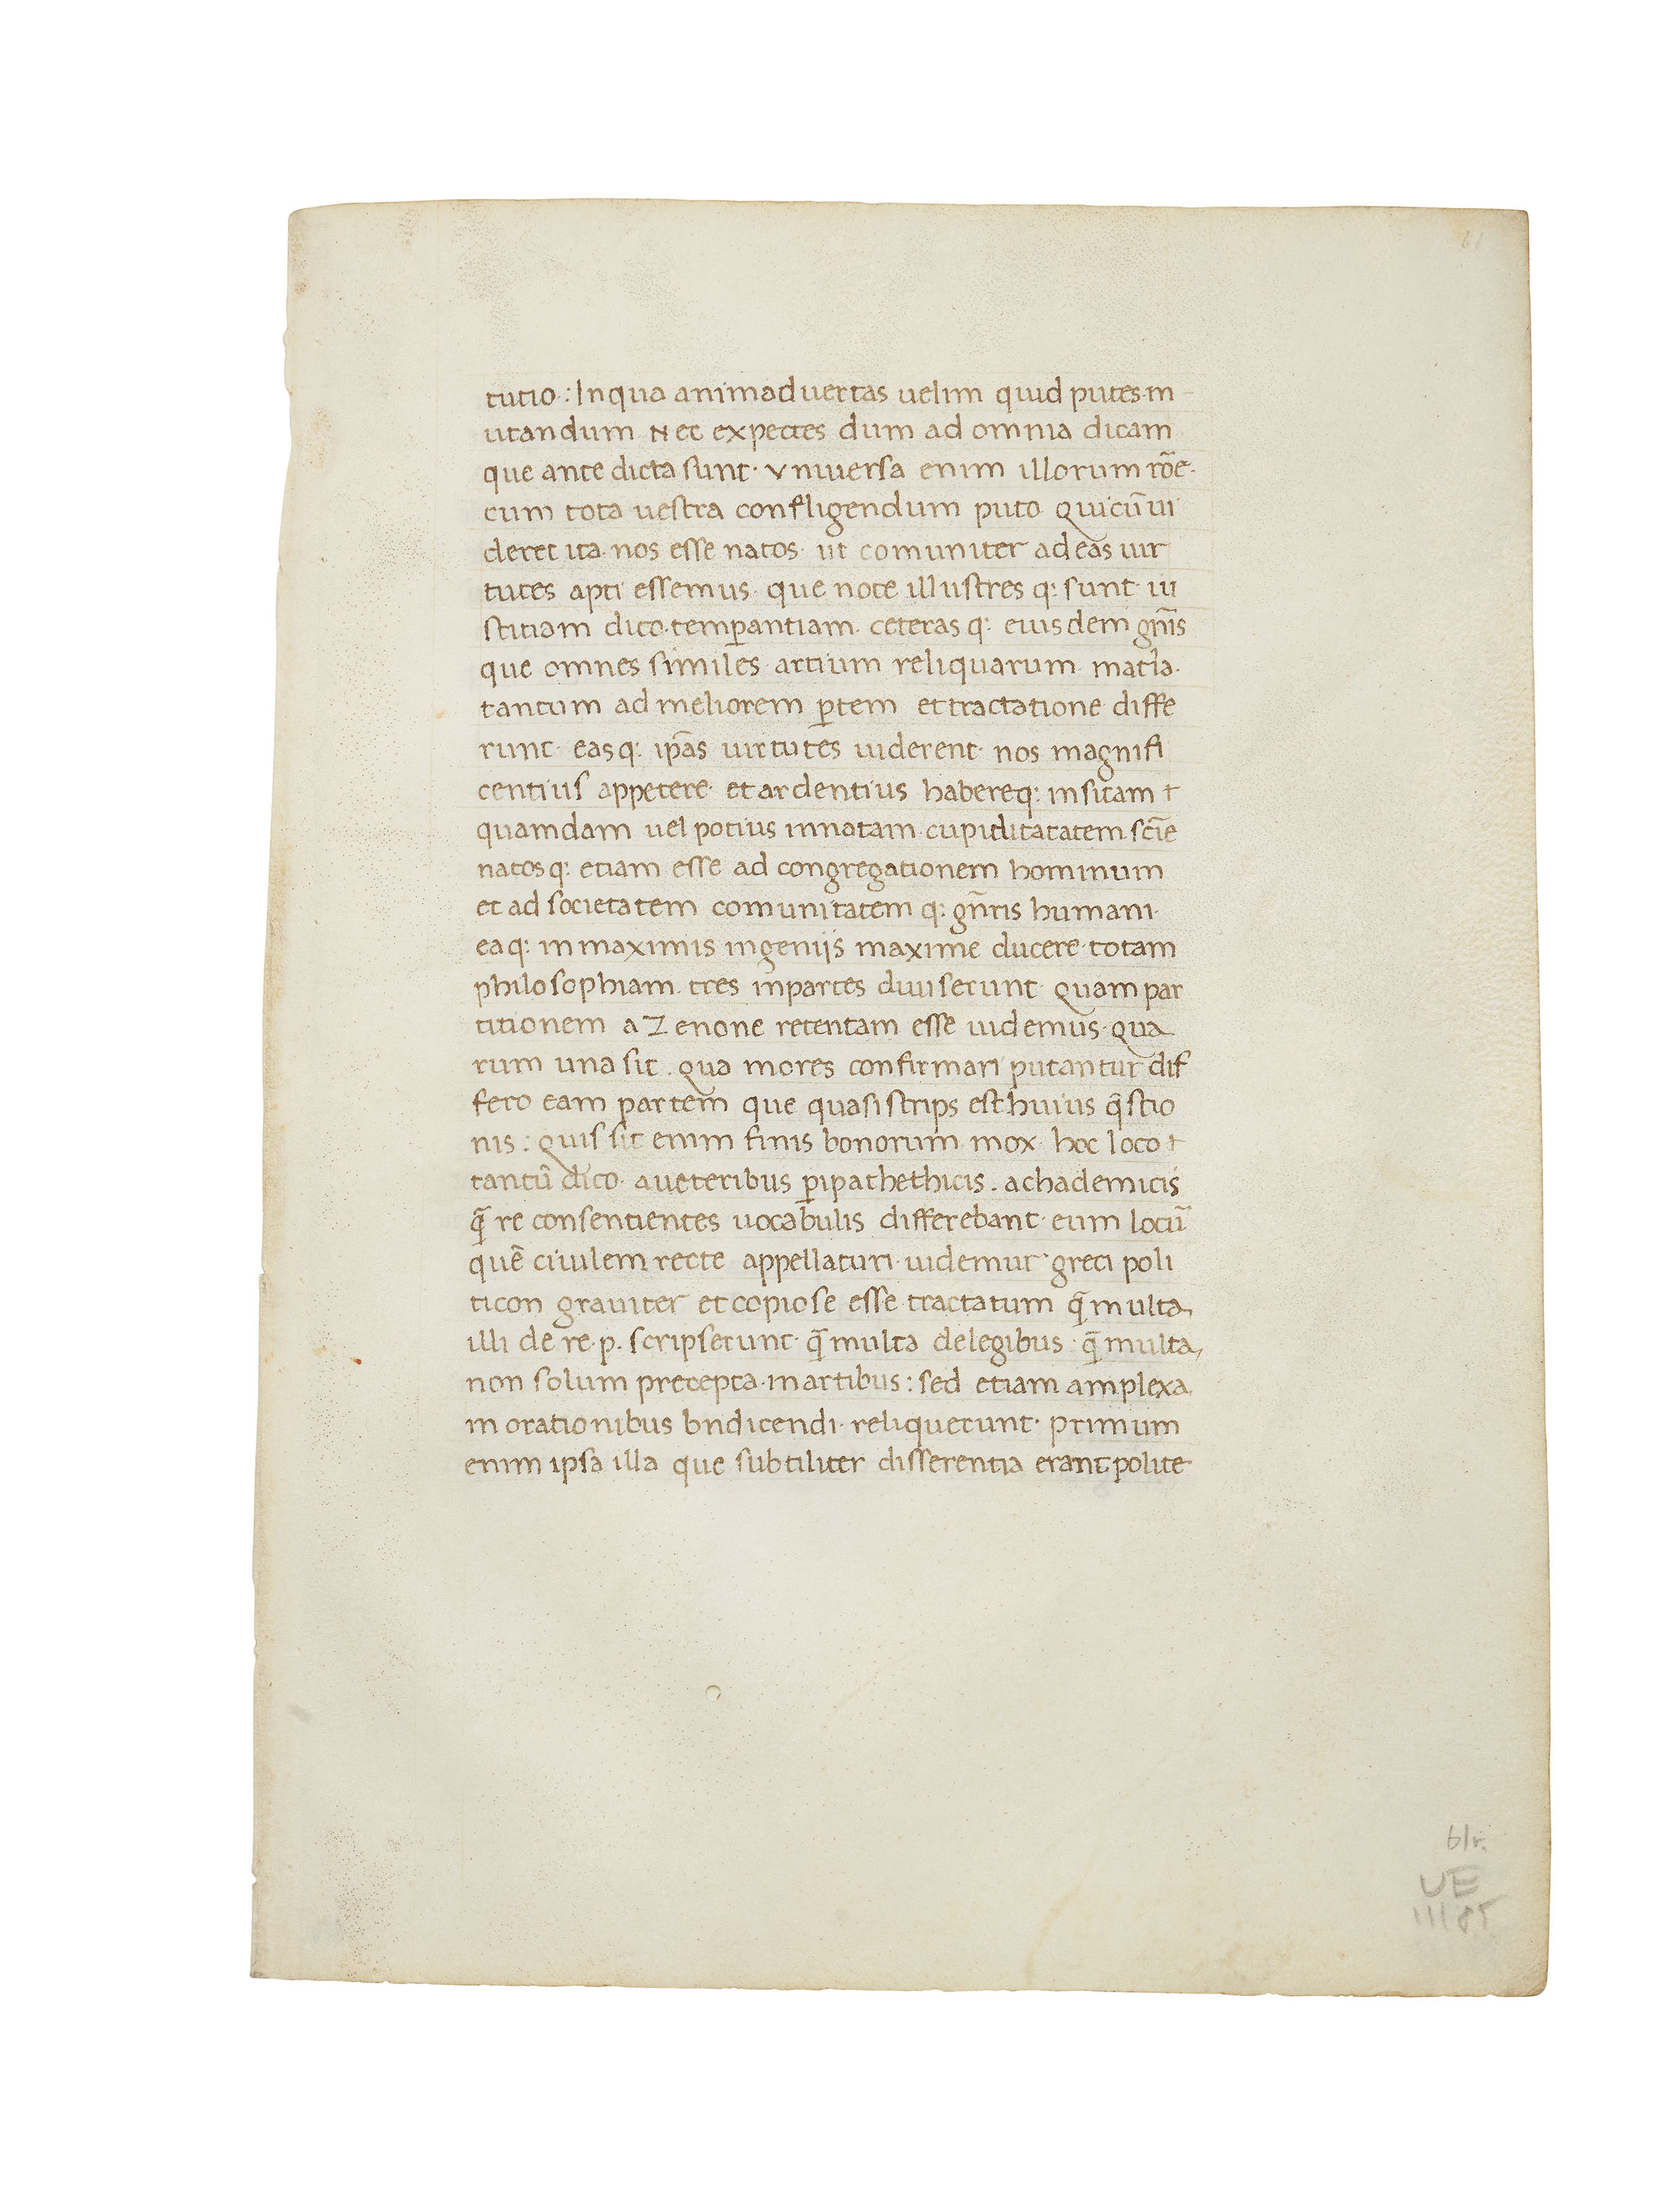 61
tutio : In qua animaduertas uelim quid putes in
utandum Nec expectes dum ad omnia dicam
que ante dicta sunt · vniuersa enim illorum rōe ·
cum tota uestra confligendum puto Qui cū ui
deret ita nos esse natos · ut comuniter ad eas uir
tutes apti essemus · que note illustres q: sunt · iu
stitiam dico · temꝑantiam · ceteras q: eiusdem gnīs
que omnes similes artium reliquarum mat'ia ·
tantum ad meliorem ꝑtem et tractatione diffe
runt · eas q: ip̄as uirtutes uiderent · nos magnifi
centius appetere · et ardentius habere q: insitam t
quamdam uel potius innatam cupiditatatem sciē
natos q: etiam esse ad congregationem hominum
et ad societatem comunitatem q: gn̄ris humani ·
ea q: in maximis ingeniis maxime ducere · totam
philosophiam tres in partes diuiserunt · Quam par
titionem a Zenone retentam esse uidemus · qua
rum una sit . qua mores confirmari putantur dif
fero eam partem que quasi strips est huius q̄stio
nis : Quis sit enim finis bonorum mox · hoc loco t
tantū dico · a ueteribus ꝑipathethicis . achademicis
q̄ re consentientes uocabulis differebant · eum locū
quē ciuilem recte appellaturi uidemur greci poli
ticon grauiter et copiose esse tractatum q̄ multa
illi de re · p . scripserunt · q̄ multa de legibus · q̄ multa
non solum precepta · in artibus : sed etiam amplexa
in orationibus bn dicendi · reliquerunt · Primum
enim ipsa illa que subtiliter disserentia erant polite
61r.
UE
III 85